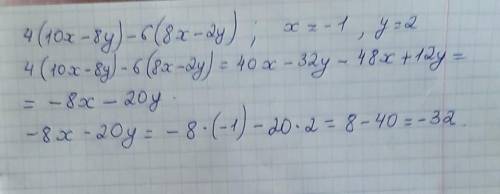 4(10x-8y)-6(8x-2y) ; x=-1 , y=2
4(10x-8y)-6(8x-2y)=40x-32y-48x+12y=
=-8x-20y.
-8x-20y=-8·(-1)-20·2=8-40=-32.